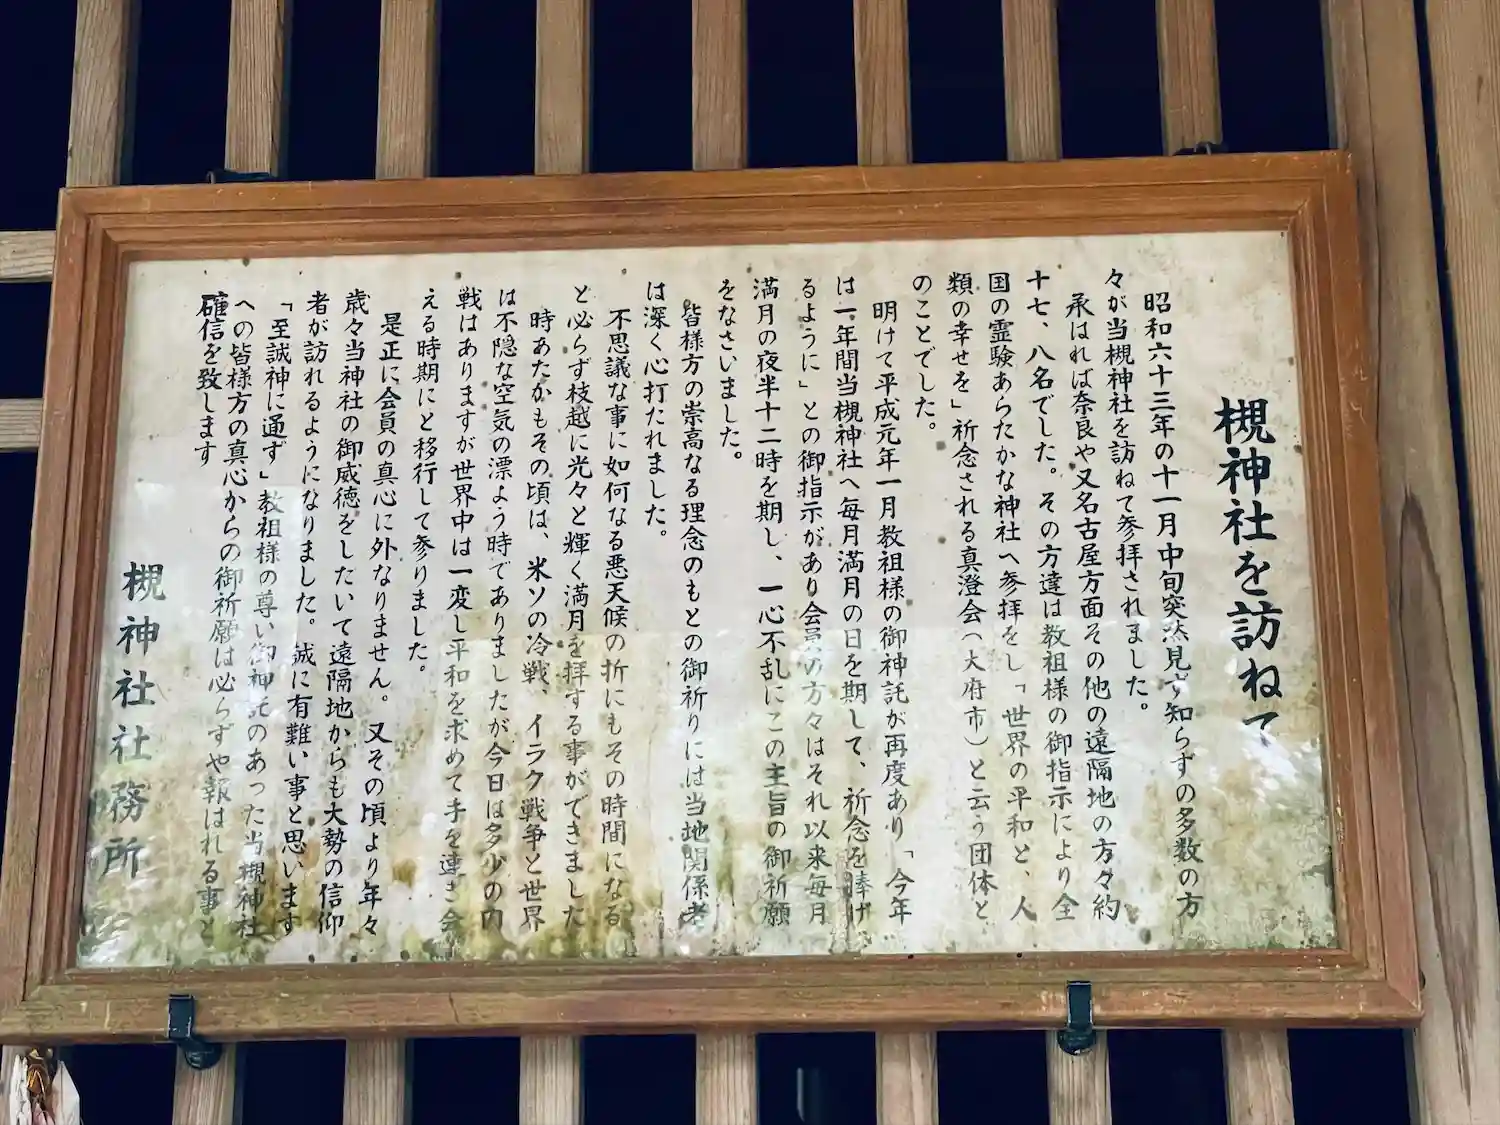 槻神社を訪ねて
昭和六十三年の十一月中旬突然見ず知らずの多数の方
々が当槻神社を訪ねて参拝されました。
承はれば奈良や又名古屋方面その他の遠隔地の方々約
十七、八名でした。その方達は教祖様の御指示により全
国の霊験あらたかな神社へ参拝をし「世界の平和と、人
類の幸せを」祈念される真澄会(大府市)と云う団体と
のことでした。
明けて平成元年一月教祖様の御神託が再度あり「今年
は一年間当槻神社へ毎月満月の日を期して、祈念を捧げ
るように」との御指示があり会員の方々はそれ以来毎月
満月の夜半十二時を期し、一心不乱にこの主旨の御祈願
をなさいました。
皆様方の崇高なる理念のもとの御祈りには当地関係者
は深く心打たれました。
不思議な事に如何なる悪天候の折にもその時間になる
と必らず枝越に光々と輝く満月を拝する事ができました
時あたかもその頃は、米ソの冷戦、イラク戦争と世界
は不隠な空気の漂よう時でありましたが今日は多少の内
戦はありますが世界中は一変し平和を求めて手を連ぎ会
える時期にと移行して参りました。
是正に会員の真心に外なりません。又その頃より年々
歳々当神社の御威徳をしたいて遠隔地からも大勢の信仰
者が訪れるようになりました。誠に有難い事と思います
「至誠神に通ず」教祖様の尊い御神託のあった当槻神社
への皆様方の真心からの御祈願は必らずや報はれる事と
確信を致します
槻神社社務所